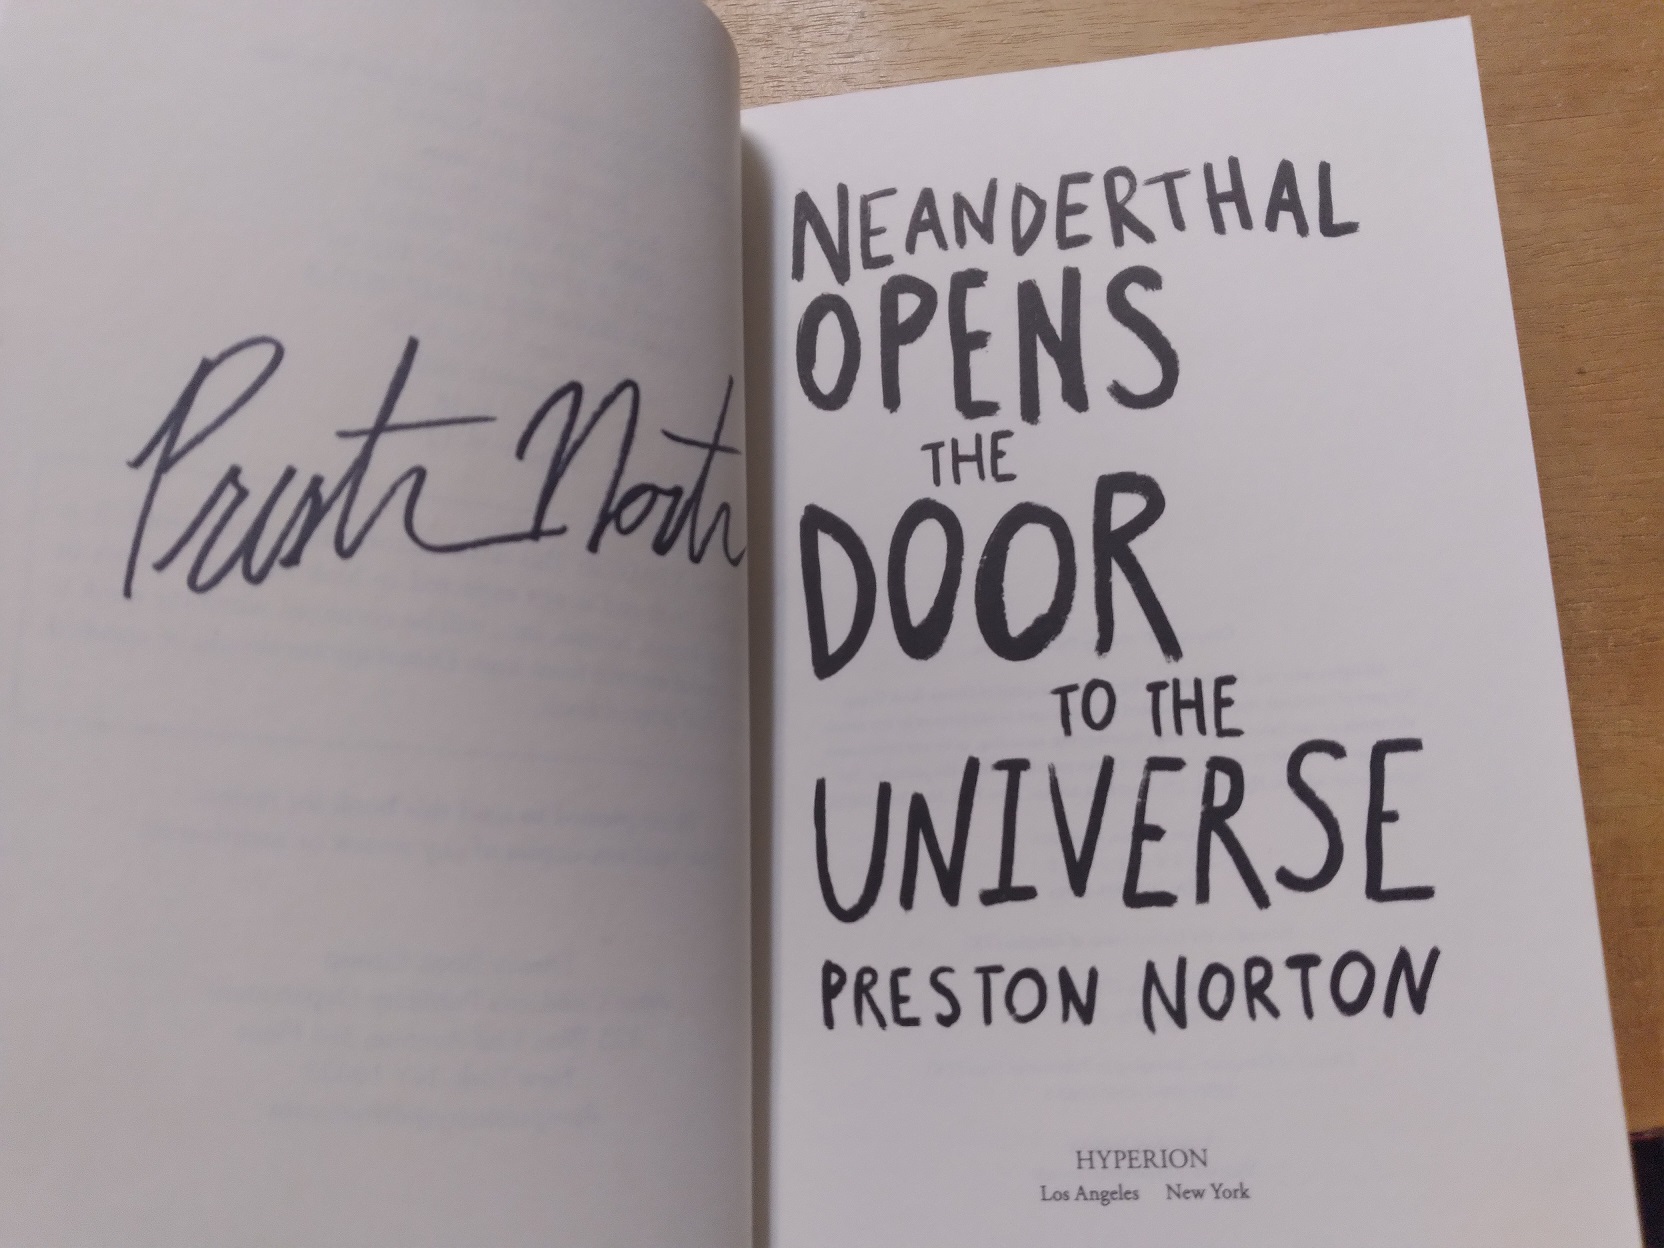 Preston Norton
NEANDERTHAL
OPENS
THE
DOOR
TO THE
UNIVERSE
PRESTON NORTON
HYPERION
Los Angeles New York